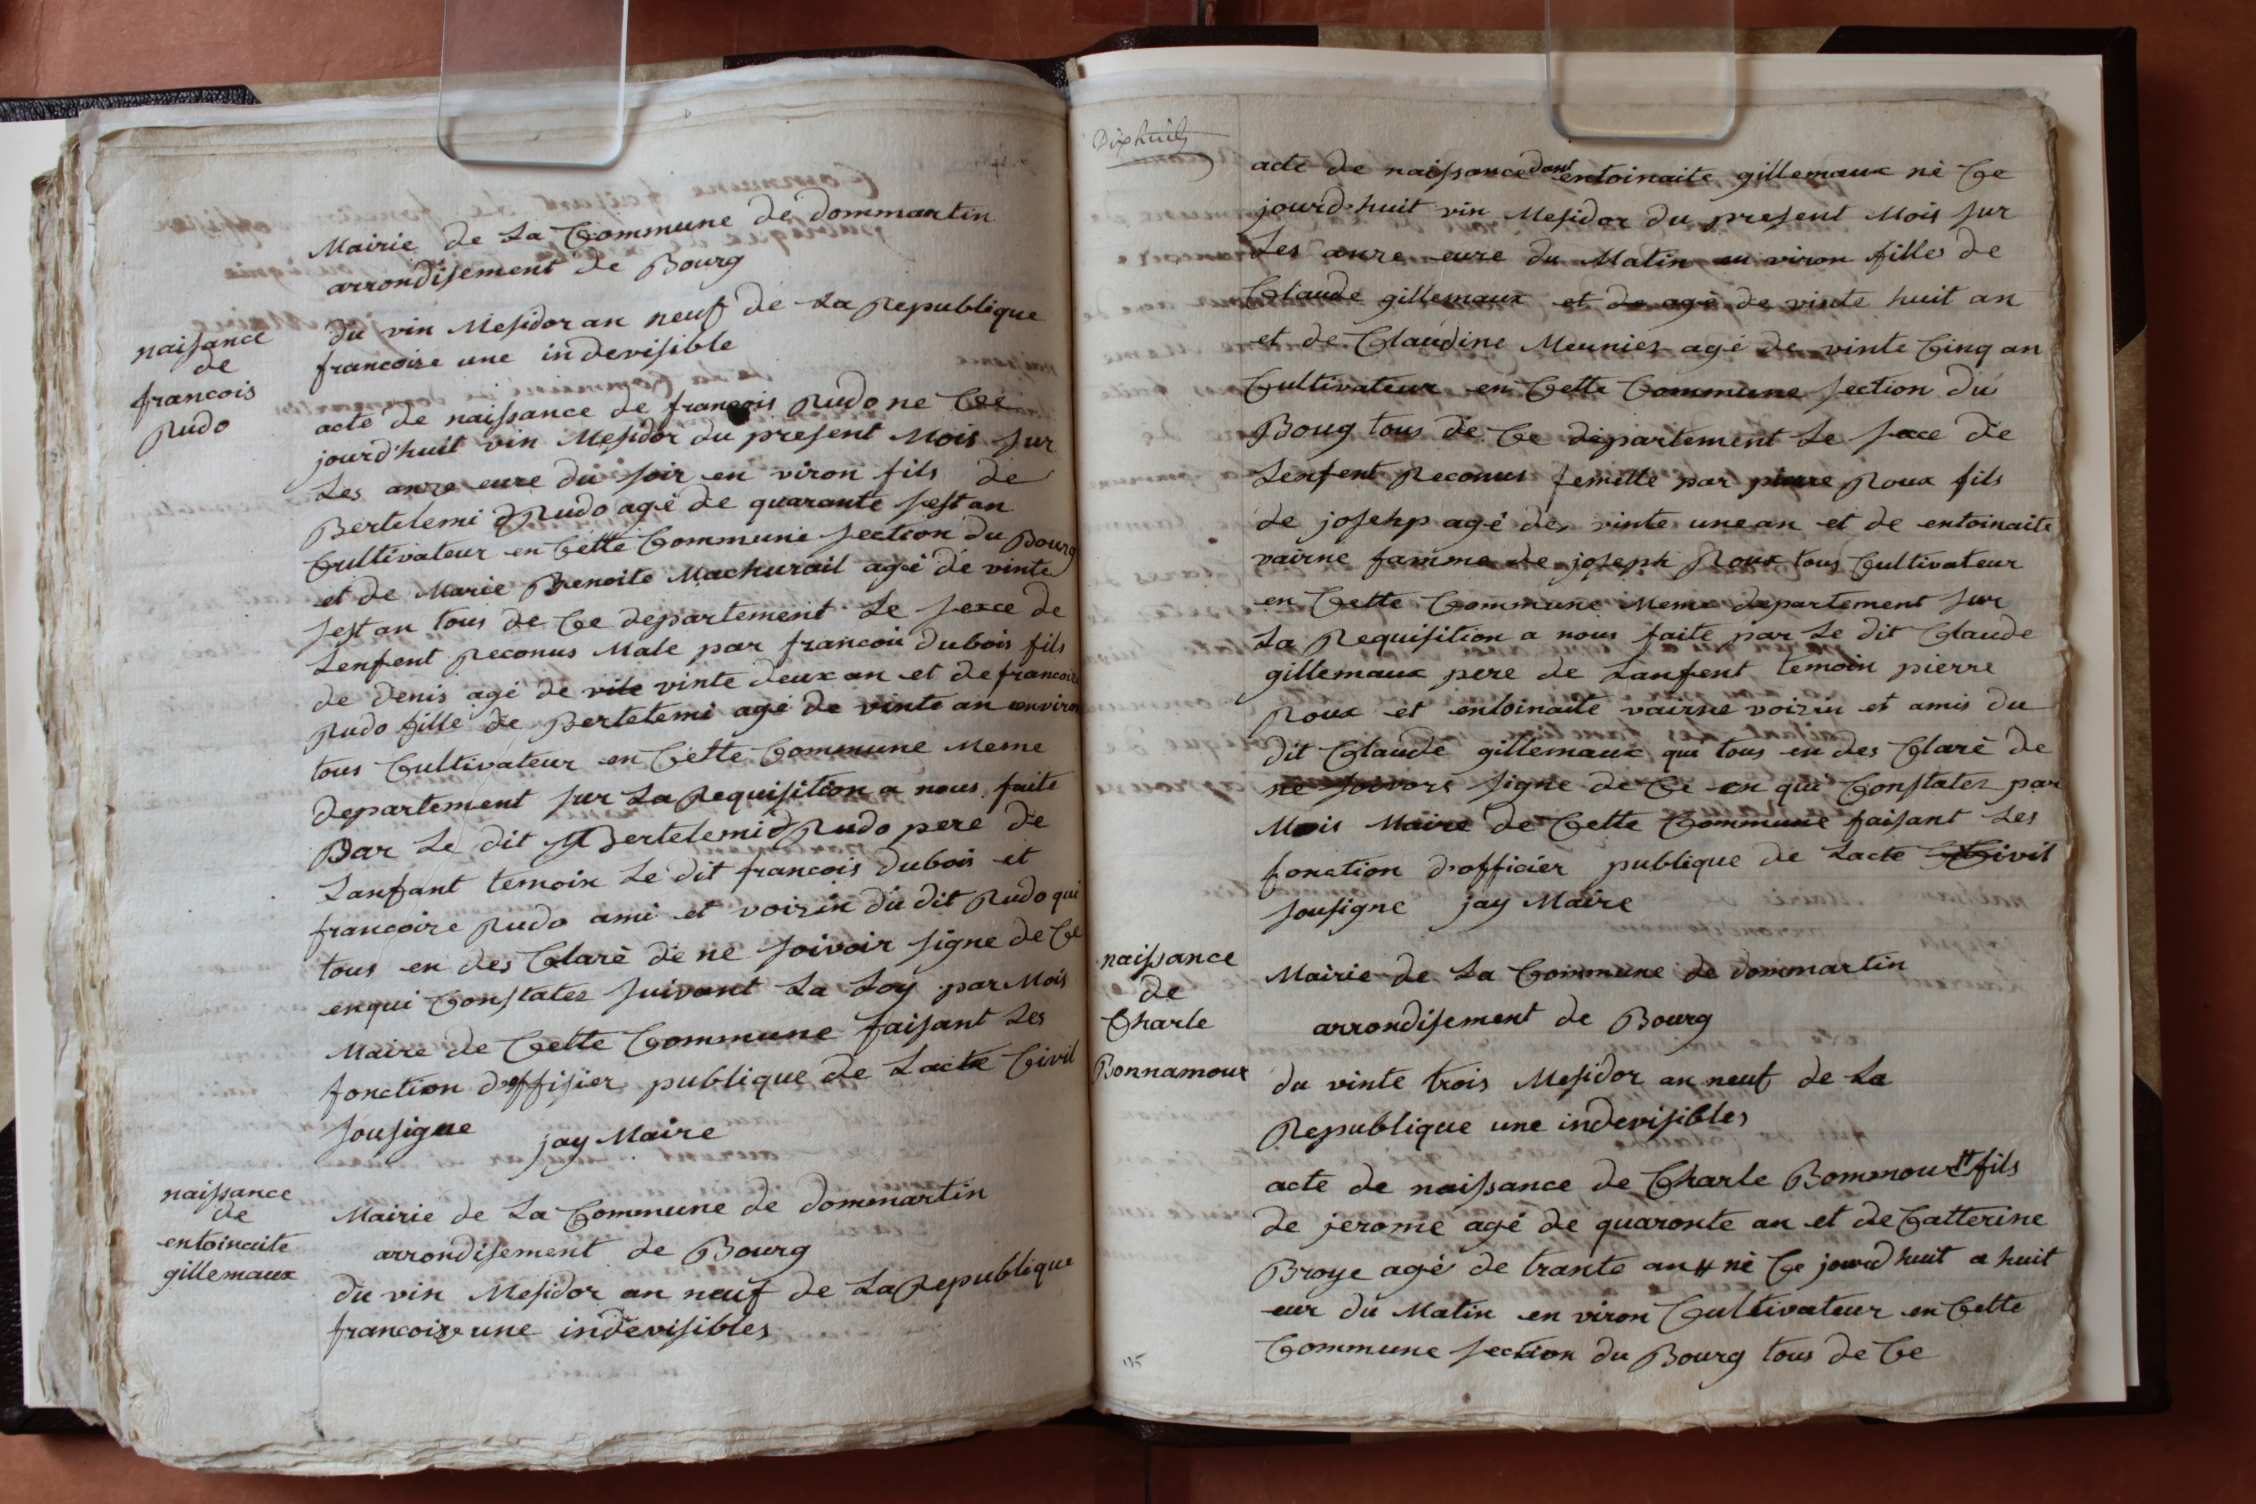 Mairie de La Commune de dommartin
arrondisement de Bourg
naissance
de
francois
Rudo
du vin Mesidor an neuf de La Republique
francoise une indevisible
acte de naissance de françois Rudo ne Ce
jourd'huit vin Mesidor du present Mois sur
Les onze eure du soir en viron fils de
Bertelemi Rudo agé de quarante sest an
Cultivateur en Cette Commune section du Bourg
et de Marie Benoite Machurail agé de vinte
sest an tous de Ce departement Le sexce de
Lenfent Reconus Male par francois dubois fils
de denis agé de vinte deux an et de francoise
Rudo fille de Bertelemi agé de vinte an environ
tous Cultivateur en Cette Commune Meme
departement sur La Requisition a nous faite
Par Le dit Bertelemi Rudo pere de
Lanfant temoin Le dit francois dubois et
francoise Rudo ami et voizin du dit Rudo qui
tous en des Claré de ne soivoir signe de Ce
enqui Constater suivant La Loy par Mois
Maire de Cette Commune faisant Les
fonction doffisier publique de Lacte Civil
sousigne jay Maire
naissance
de
entoinaite
gillemaux
Mairie de La Commune de dommartin
arrondisement de Bourg
du vin Mesidor an neuf de La Republique
francoize une indevisibles
Dixhuit
acte de naissance dont entoinaite gillemaux né Ce
jourd'huit vin Mesidor du present Mois sur
Les onze eure du Matin en viron fille de
Claude gillemaux et de agé de vinte huit an
et de Claudine Meunier agé de vinte Cinq an
Cultivateur en Cette Commune section du
Boug tous de Ce departement Le sexce de
Lenfent Reconus femille par pierre Roux fils
de josehp agé de vinte une an et de entoinaite
vairne famme de joseph Roux tous Cultivateur
en Cette Commune Meme departement sur
La Requisition a nous faite par Le dit Claude
gillemaux pere de Lanfent temoin pierre
Roux et entoinaite vairne voizin et amis du
dit Claude gillemaux qui tous en des Claré de
ne soivors signe de Ce en qui Constater par
Mois Maire de Cette Commune faisant Les
fonction d'officier publique de Lacte Civil
sousigne jay Maire
naissance
de
Charle
Bonnamour
Mairie de La Commune de dommartin
arrondisement de Bourg
du vinte trois Mesidor an neuf de La
Republique une indevisibles
acte de naissance de Charle Bommour fils
de jerome agé de quaronte an et de Catterine
Broye agé de trante an né Ce jourd huit a huit
eur du Matin en viron Cultivateur en Cette
Commune section du Bourg tous de Ce